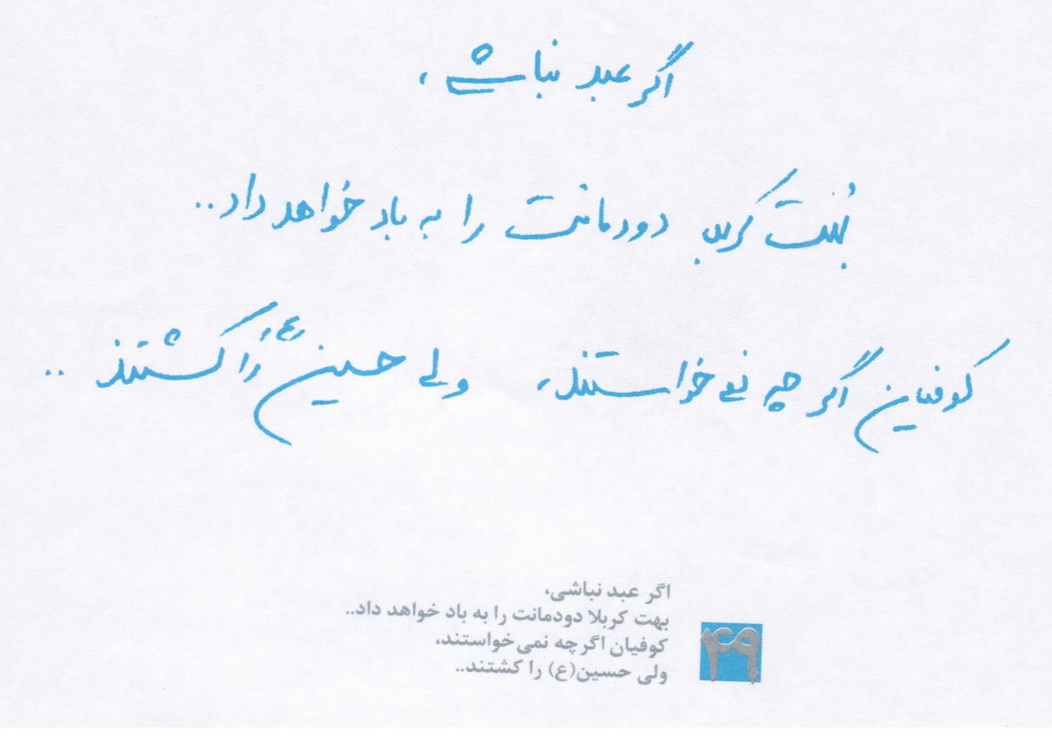 اگر عبد نباشی،
بُهت کربلا دودمانت را به باد خواهد داد..
کوفیان اگر چه نمی خواستند، ولی حسین ؑ را کشتند ..
اگر عبد نباشی،
بهت کربلا دودمانت را به باد خواهد داد..
کوفیان اگرچه نمی‌خواستند،
ولی حسین(ع) را کشتند..
۴۹